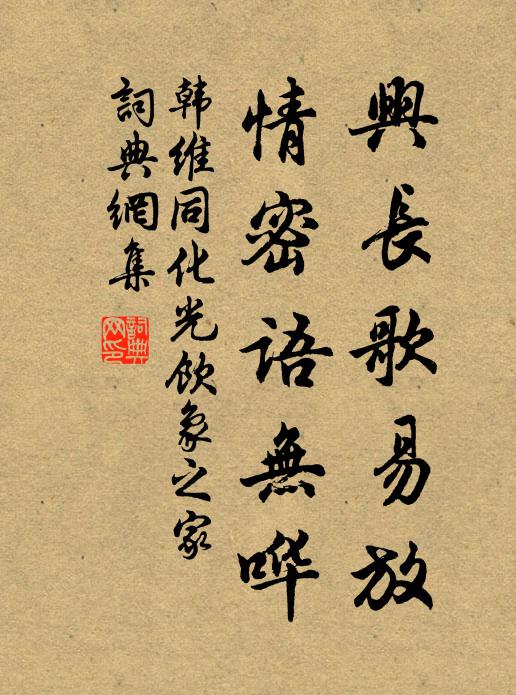 興長歌易放
情密語無哗
韩維同化光飲象之家
詞典網集
詞典网印